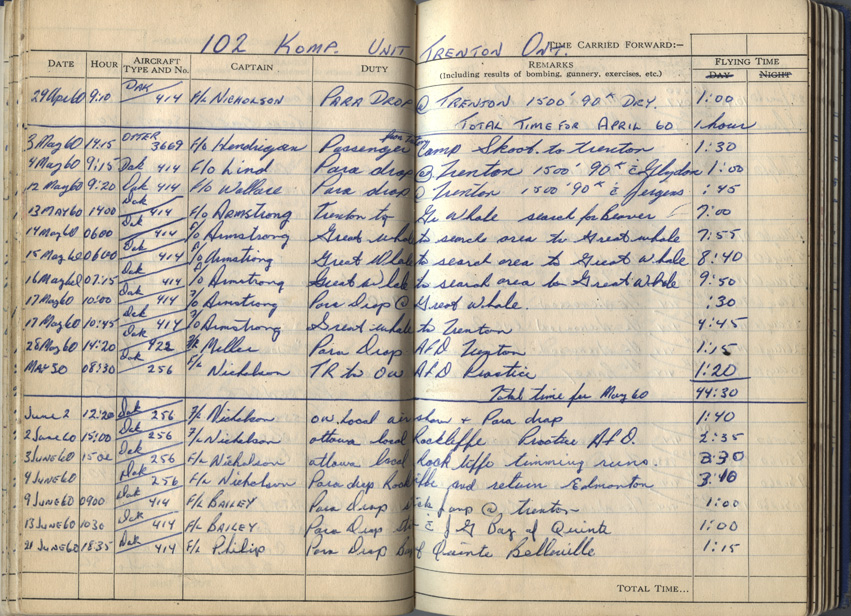 102 KOMP. UNIT TRENTON ONT. TIME CARRIED FORWARD:-
DATE HOUR AIRCRAFT TYPE AND No. CAPTAIN DUTY REMARKS (Including results of bombing, gunnery, exercises, etc.) FLYING TIME DAY NIGHT
29 Apr 60 9:10 DAK 414 F/L NICHOLSON PARA DROP @ TRENTON 1500' 90K DRY. 1:00
TOTAL TIME FOR APRIL 60 1 hour
3 May 60 14:15 OTTER 3669 F/O Hendrigan Passenger from Camp Skoot. to trenton 1:30
4 May 60 9:15 Dak 414 F/O Lind Para drop @ Trenton 1500' 90K & Glydon 1:00
12 May 60 9:20 Dak 414 F/O Wallace Para drop @ Trenton 1500' 90K & Jergens :45
13 MAY 60 1400 Dak 414 F/O ARMSTRONG Trenton to Gr whale search for beaver 7:00
14 May 60 0600 Dak 414 F/O Armstrong Great whale to search area to Great whale 7:55
15 May 60 0600 Dak 414 F/O Armstrong Great Whale to search area to Great whale 8:40
16 May 60 07:15 Dak 414 F/O Armstrong Great whale to search area to Great Whale 9:50
17 May 60 10:00 Dak 414 F/O Armstrong Para Drop @ Great whale. :30
17 May 60 10:45 Dak 414 F/O Armstrong Great whale to Trenton 4:45
28 May 60 14:20 Dak 422 Miller Para Drop AFD Trenton 1:15
MAY 30 08:30 Dak 256 F/L Nicholson TR to OW AFD Practice 1:20
Total time for May 60 44:30
June 2 12:20 Dak 256 F/L Nicholson OW local air show + Para drop 1:40
2 June 60 15:00 Dak 256 F/L Nicholson ottawa local Rockliffe Practice AFD. 2:35
3 JUNE 60 Dak 256 F/L Nicholson ottawa local Rockliffe timming runs. 3:30
4 JUNE 60 Dak 256 F/L Nicholson Para drop Rockliffe and return Edmonton 3:40
9 JUNE 60 0900 Dak 414 F/L BAILEY Para Drop stick jump @ trenton 1:00
13 JUNE 60 1030 Dak 414 F/L BAILEY Para Drop & JG Bay of Quinte 1:00
21 JUNE 60 1835 Dak 414 F/L Philip Para Drop Bay of Quinte Belleville 1:15
TOTAL TIME...